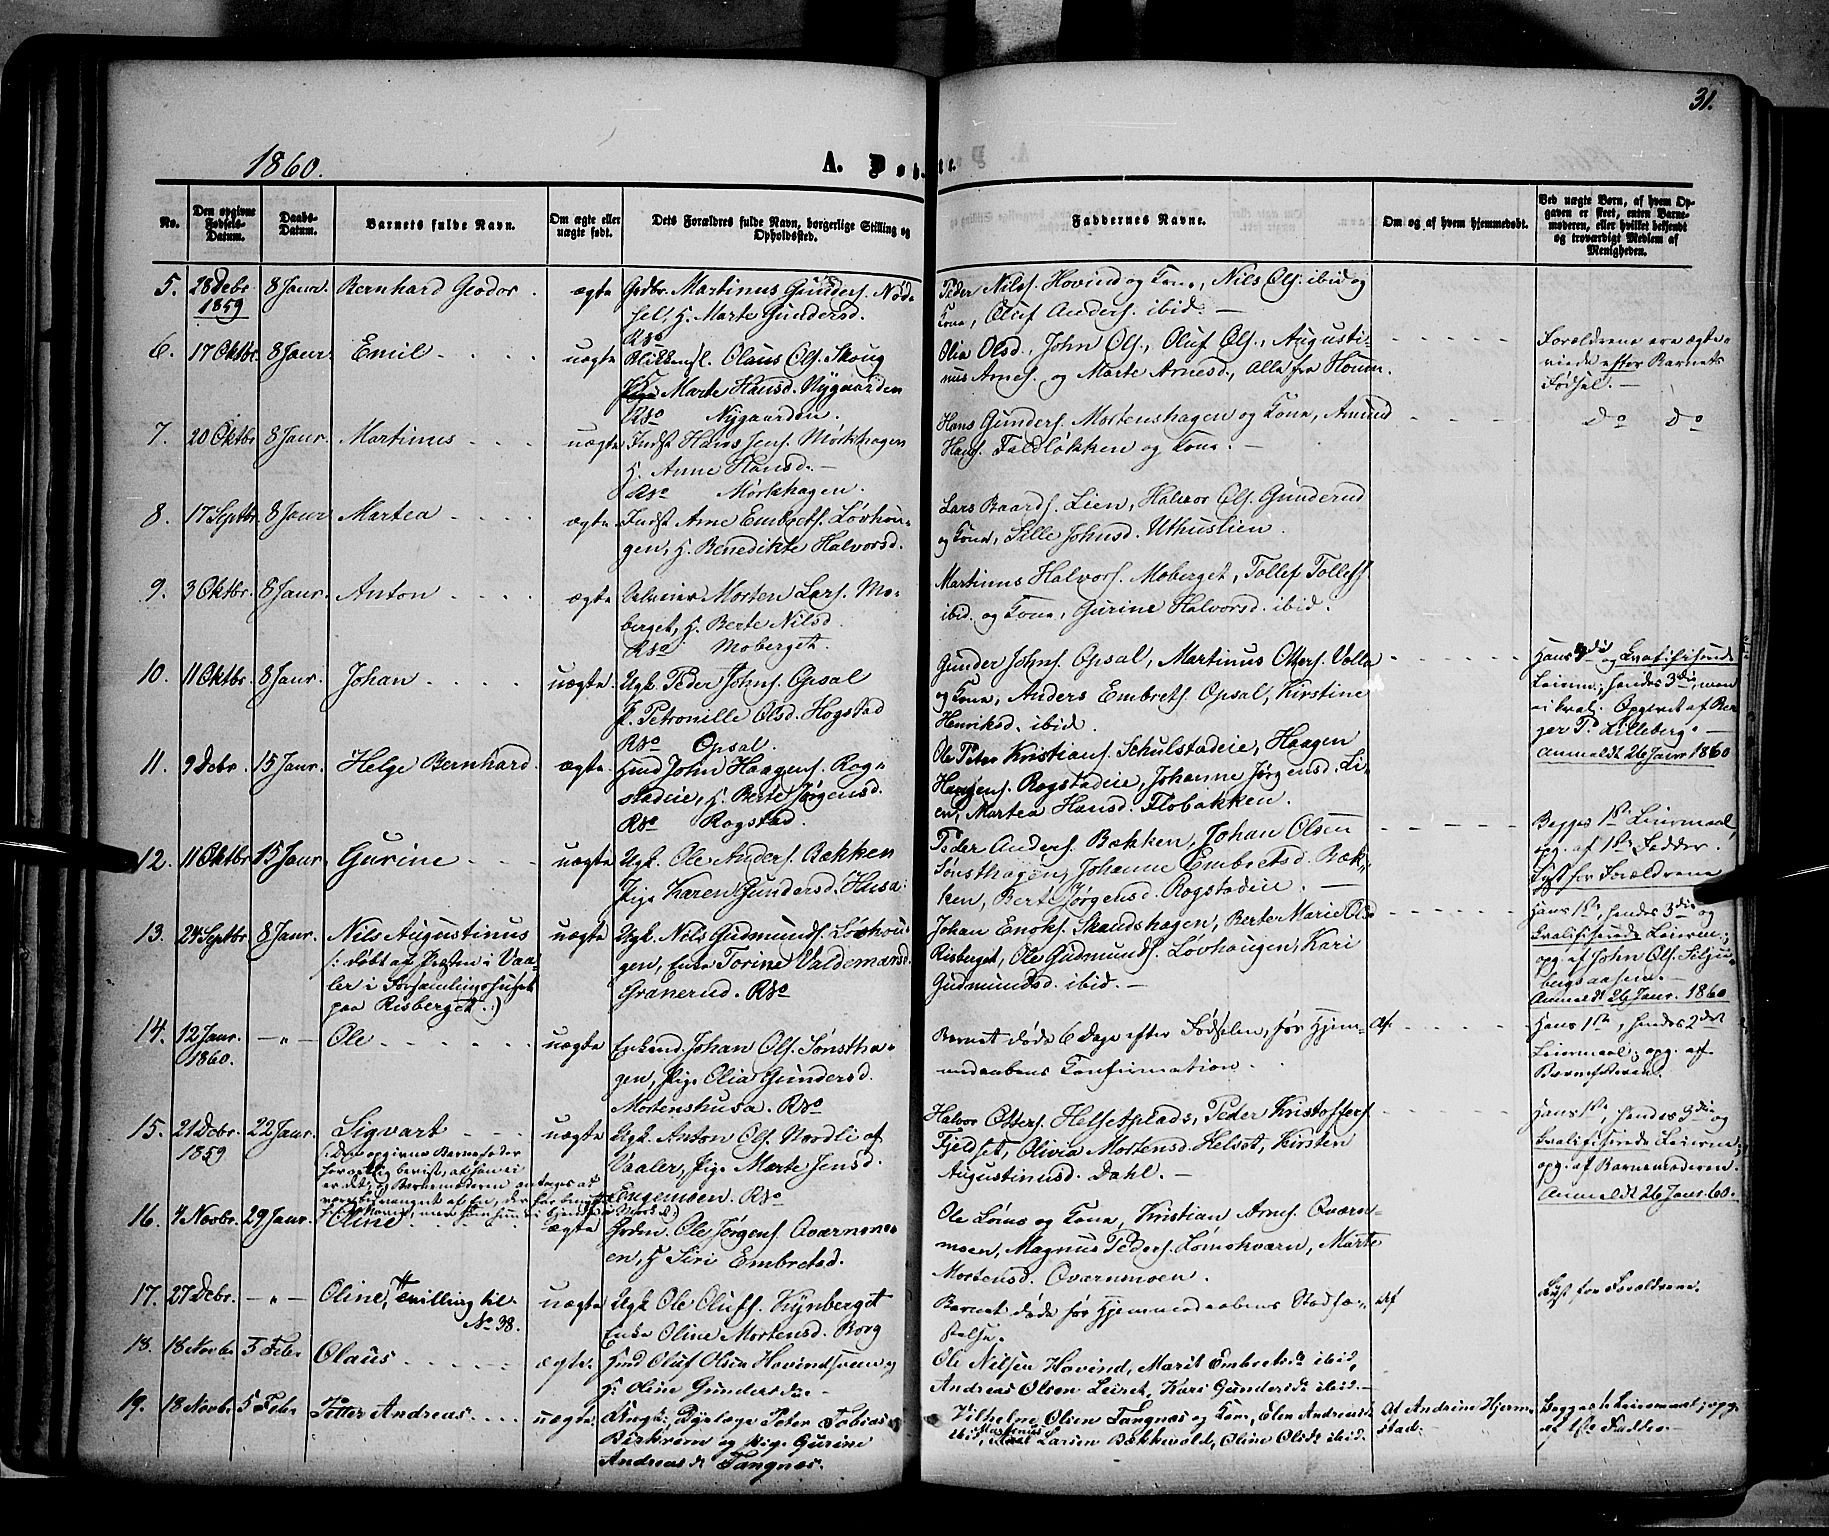 31.
1860.
A. Døbte.
No.
Den opgivne Fødsels-Datum.
Daabs-Datum.
Barnets fulde Navn.
Om ægte eller uægte født.
Dets Forældres fulde Navn, borgerlige Stilling og Opholdssted.
Faddernes Navne.
Om og af hvem hjemmedøbt.
Ved uægte Børn, af hvem Opgaven er skeet, enten Barnemoderen, eller hvilket bekjendt og troværdigt Medlem af Menigheden.
5. 28 Debr. 1859 8 Janr. Bernhard Geodor. ægte
Grdbr. Martinus Gunders.
H. Marte Gundersd.
Peder Nils. Hovind og Kone, Nils Ols. ibid og
Kone, Oluf Anders. ibid.
6. 17 Oktbr. 8 Janr. Emil uægte
Olaus Ols. Skoug
Marte Hansd. Nygaarden
Nygaarden.
Olia Olsd., John Ols., Oluf Ols., Augusti-
nus Arnes. og Marte Arnesd., Alle fra
Forældrene ere ægte-
viede efter Barnets
Fødsel.
7. 20 Oktbr. 8 Janr. Martinus uægte
Indst Hans Jens. Mørkhagen
H. Anne Hansd.
Mørkhagen.
Hans Gunders. Mortenshagen og Kone, Amund
Hans. Faldløkken og Kone.
Do Do
8. 17 Septbr. 8 Janr Martea ægte
Indst Arne Embrets. Løvhou-
gen, H. Benedikte Halvorsd.
Lars Baards. Lien, Halvor Ols. Gunderud
og Kone, Sille Johnsd. Uthuslien.
9. 3 Oktbr. 8 Janr. Anton ægte
Morten Lars. Mo-
berget, H. Berte Nilsd.
Moberget.
Martinus Halvors. Moberget, Tollef Tollefs.
ibid. og Kone, Gurine Halvorsd. ibid.
10. 11 Oktbr. 8 Janr. Johan uægte
Ugk. Peder Johns. Opsal
P. Petronille Olsd. Hogstad
Opsal.
Gunder Johns. Opsal, Martinus Otters. Volla
og Kone, Anders Embrets. Opsal, Kirstine
Henriksd. ibid.
Hans og kvalifiserede
Leierm., hendes 3die, men
ei kval. Opgivet af
Lilleberg.
Anmeldt 26 Janr 1860
11. 9 Debr. 15 Janr. Helge Bernhard. ægte
Hmd John Haagens. Rog-
stadeie, H. Berte Jørgensd.
Rogstad.
Ole Peter Kristians. Schulstadeie, Haagen
Haagens. Rogstadeie, Johanne Jørgensd. Li-
en, Martea Hansd. Flobakken.
12. 11 Oktbr 15 Janr. Gurine uægte
Ugk. Ole Anders. Bækken
Pige Karen Gundersd. Husa.
Peder Anders. Bækken, Johan Olsen
Sønsthagen, Johanne Embretsd. Bæk-
ken, Berte Jørgensd. Rogstadeie.
Begges 1ste Leiermaal
opg. af 1ste Fadder.
Lyst for Forældrene
13. 24 Septbr 8 Janr. Nils Augustinus uægte
(: døbt af Præsten i Vaa-
ler i Forsamlingshuset
paa Risberget.:)
Ugk. Nils Gudmunds. Løvhou-
gen, Enke Torine Valdemarsd.
Granerud.
Johan Enoks. Skandshagen, Berte Marie Olsd
Risberget, Ole Gudmunds. Løvhaugen, Kari
Gudmundsd. ibid.
Hans 1ste, hendes 3die og
kvalifiserede Leierm.;
opg. af John Ols. Silju-
bergsaasen.
Anmeldt 26 Janr. 1860
14. 12 Janr. 1860. —"— Ole uægte
Enkemd. Johan Ols. Sønstha-
gen, Pige Olia Gundersd.
Mortenshusa.
Barnet døde 6 Dage efter Fødselen, før Hjem-
medaabens Confirmation.
Af
Hans 1ste, hendes 2det
Leiermaal; opg. af
Barnefaderen.
15. 21 Debr. 1859 22 Janr. Sigvart uægte
(: Den opgivne Barnefader
Ugk. Anton Ols. Nordli af
Vaaler, Pige Marte Jensd.
Engemoen.
Halvor Otters. Helsetplads, Peder Kristoffers.
Fjeldset, Olivia Mortensd. Helset, Kirsten
Augustinusd. Dahl.
Hans 1ste, hendes 3die og
kvalifiserede Leierm.;
opg. af Barnemoderen.
Anmeldt 26 Janr. 60.
16. 4 Novbr. 29 Janr. Oline ægte
Ole Jørgens. Qværnmo-
en, H Siri Embretsd.
Ole Løms og Kone, Kristian Arnes. Qværn-
moen, Magnus Peders. Lømskværn, Marte
Mortensd. Qværnmoen.
17. 27 Debr. —"— Oline, Tvilling til
No 38.
uægte
Ugk Ole Olufs. Kynberget
Enke Oline Mortensd. Borg
Barnet døde før Hjemmedaabens Stadfæ-
stelse.
Af
Lyst for Forældrene.
18. 18 Novbr 3 Febr Olaus ægte.
Hmd Oluf Olsen Hovind
H. Oline Gundersdr
Ole Nilsen Hovind, Marit Embretsdr ibid,
Andreas Olsen Leiret, Kari Gundersdr ibid.
19. 18 Novbr. 5 Febr Petter Andreas uægte.
Peter Tobias
Birkrem og Pige Gurine
Andreasdr Tangnæs.
Vilhelm Olsen Tangnæs og Kone, Elen Andreasdr
ibid, Larsen Bækkevold, Oline Olsdr ibid.
At Andrine Hjerm-
stad.
Begges 1ste Leiermaal; opg.
af 1ste Fadder.